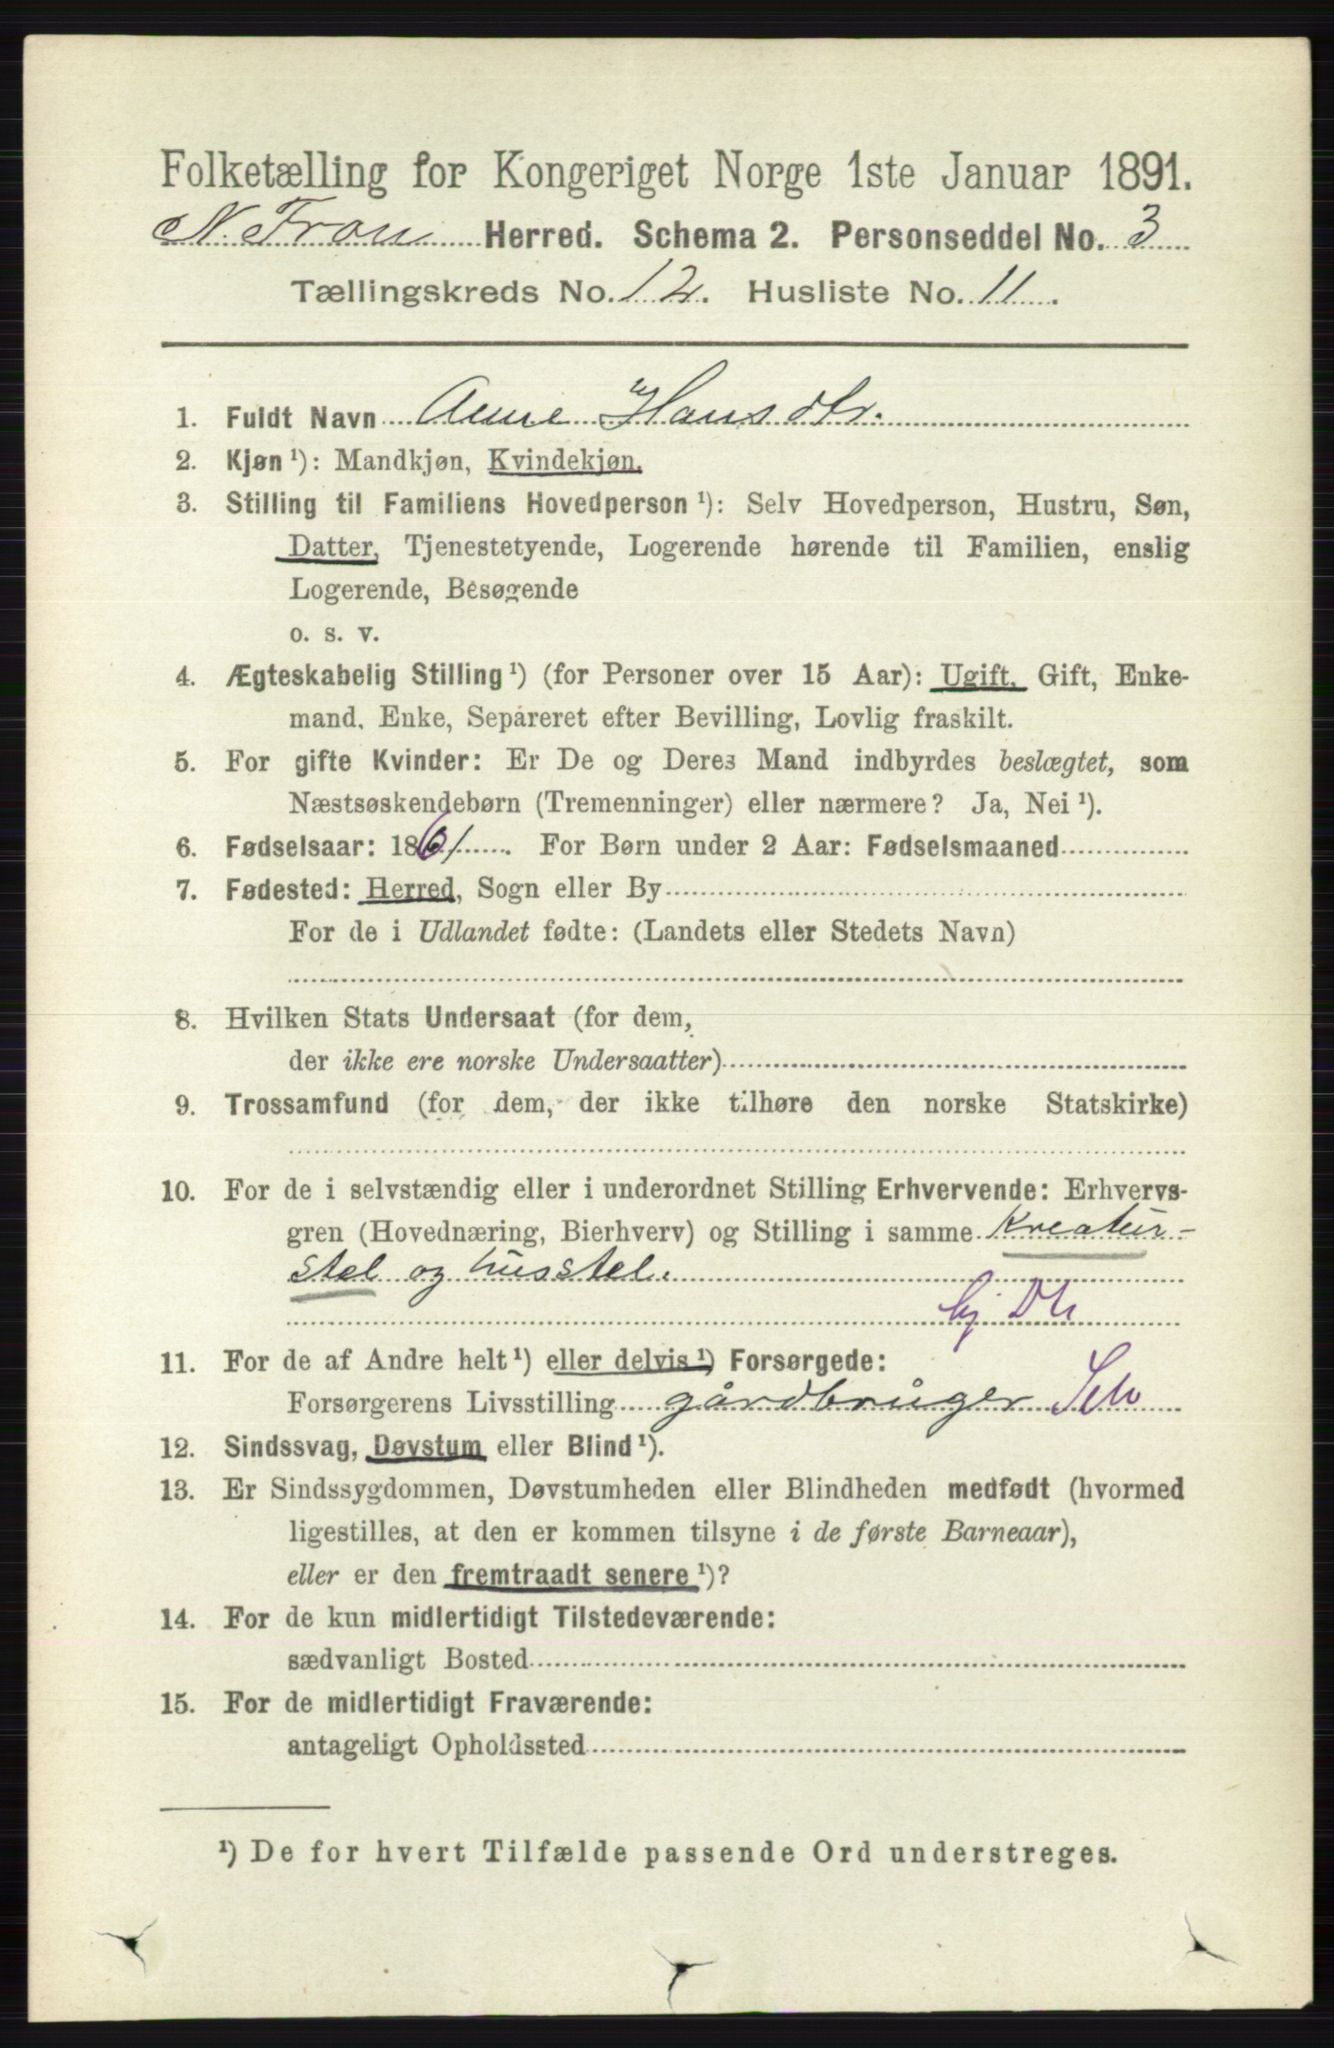 Folketælling for Kongeriget Norge 1ste Januar 1891.
N. Fron Herred. Schema 2. Personseddel No. 3
Tællingskreds No. 12. Husliste No. 11.
1. Fuldt Navn Anne Hansdtr.
2. Kjøn ¹): Mandkjøn, Kvindekjøn.
3. Stilling til Familiens Hovedperson ¹): Selv Hovedperson, Hustru, Søn,
Datter, Tjenestetyende, Logerende hørende til Familien, enslig
Logerende, Besøgende
o. s. v.
4. Ægteskabelig Stilling ¹) (for Personer over 15 Aar): Ugift, Gift, Enke-
mand, Enke, Separeret efter Bevilling, Lovlig fraskilt.
5. For gifte Kvinder: Er De og Deres Mand indbyrdes beslægtet, som
Næstsøskendebørn (Tremenninger) eller nærmere? Ja, Nei ¹).
6. Fødselsaar: 1861. For Børn under 2 Aar: Fødselsmaaned
7. Fødested: Herred, Sogn eller By
For de i Udlandet fødte: (Landets eller Stedets Navn)
8. Hvilken Stats Undersaat (for dem,
der ikke ere norske Undersaatter)
9. Trossamfund (for dem, der ikke tilhøre den norske Statskirke)
10. For de i selvstændig eller i underordnet Stilling Erhvervende: Erhvervs-
gren (Hovednæring, Bierhverv) og Stilling i samme Kreatur-
stel og husstel.
11. For de af Andre helt ¹) eller delvis ¹) Forsørgede:
Forsørgerens Livsstilling gårdbruger Selv
12. Sindssvag, Døvstum eller Blind ¹).
13. Er Sindssygdommen, Døvstumheden eller Blindheden medfødt (hvormed
ligestilles, at den er kommen tilsyne i de første Barneaar),
eller er den fremtraadt senere ¹)?
14. For de kun midlertidigt Tilstedeværende:
sædvanligt Bosted
15. For de midlertidigt Fraværende:
antageligt Opholdssted
¹) De for hvert Tilfælde passende Ord understreges.